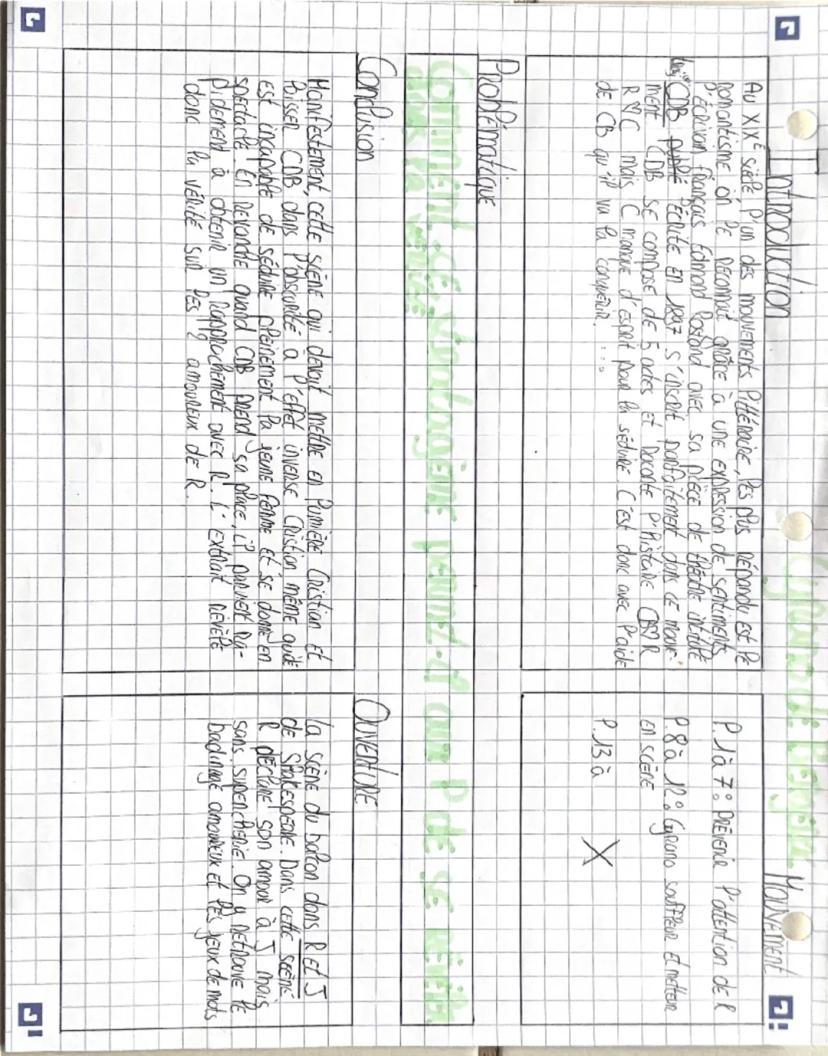 Cyrano de Bergerac
Introduction
Au XIXᵉ siècle, l'un des mouvements littéraire, les plus répandu est le
romantisme on le reconnait grâce à une expression de sentiments,
l'écrivain français Edmond Rostand avec sa pièce de théâtre intitulé
CDB écrite en 1897 s'inscrit parfaitement dans ce mouve-
ment CDB se compose de 5 actes et raconte l'Histoire CB♡R
R♡C mais C manque d'esprit pour la séduire. C'est donc avec l'aide
de CB qu'il va la conquérir. ...
Mouvement
P.1 à 7: Prévenir l'attention de R
P.8 à 12: Cyrano souffleur et metteur
en scène
P.13 à X
Problématique
Comment ce stratagème permet-il aux P de se révéler
dans la
Conclusion
Manifestement, cette scène qui devait mettre en lumière Cristian et
laisser CDB dans l'obscurité a l'effet inverse Cristian même aidé
est incapable de séduire pleinement la jeune femme et se donne en
spectacle. En revanche quand CDB prend sa place, il parvient ra-
pidement à obtenir un rapprochement avec R. L'extrait révèle
donc la vérité sur les 2 amoureux de R.
Ouverture
La scène du balcon dans R et J
de Shakespeare. Dans cette scène
R déclare son amour à J mais
sans supercherie. On y retrouve le
badinage amoureux et les jeux de mots